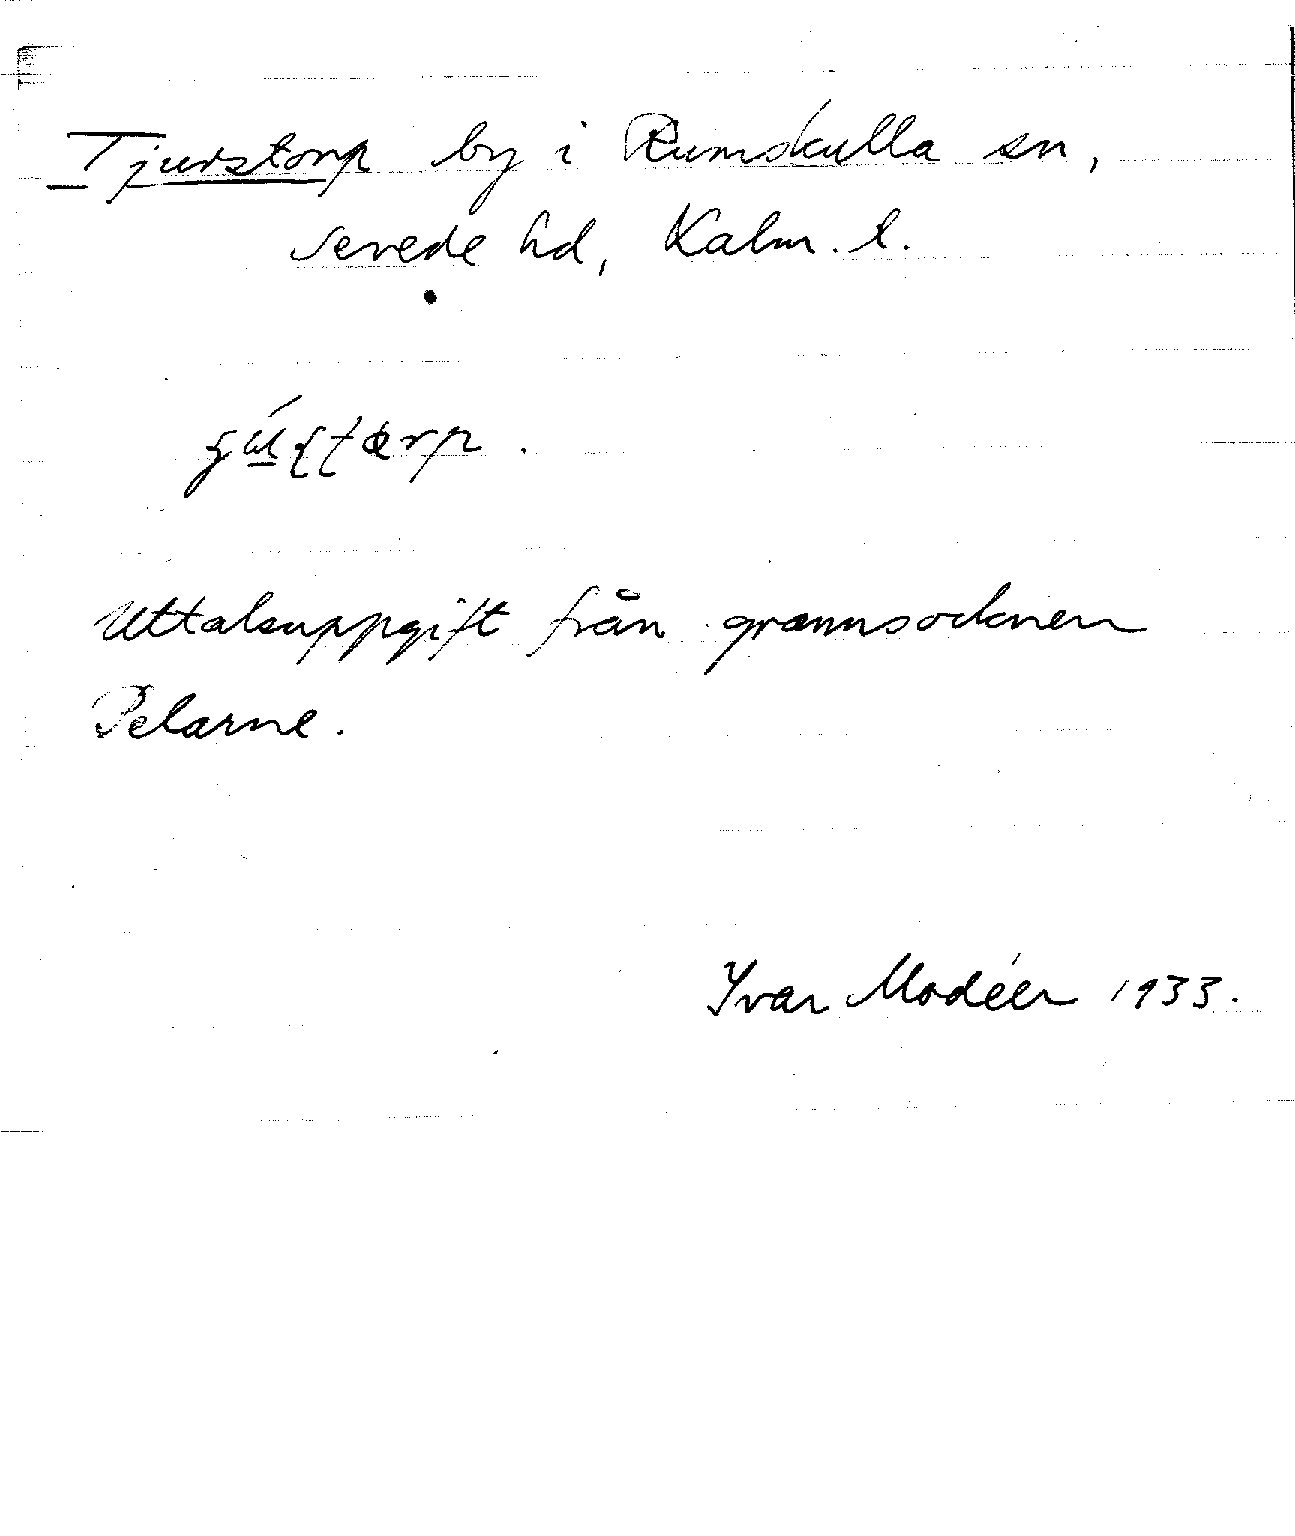 Tjurstorp by i Rumskulla sn,
Sevede hd, Kalm. l.
Uttalsuppgift från grannsocknen
Pelarne.
Yvar Modéer 1933.